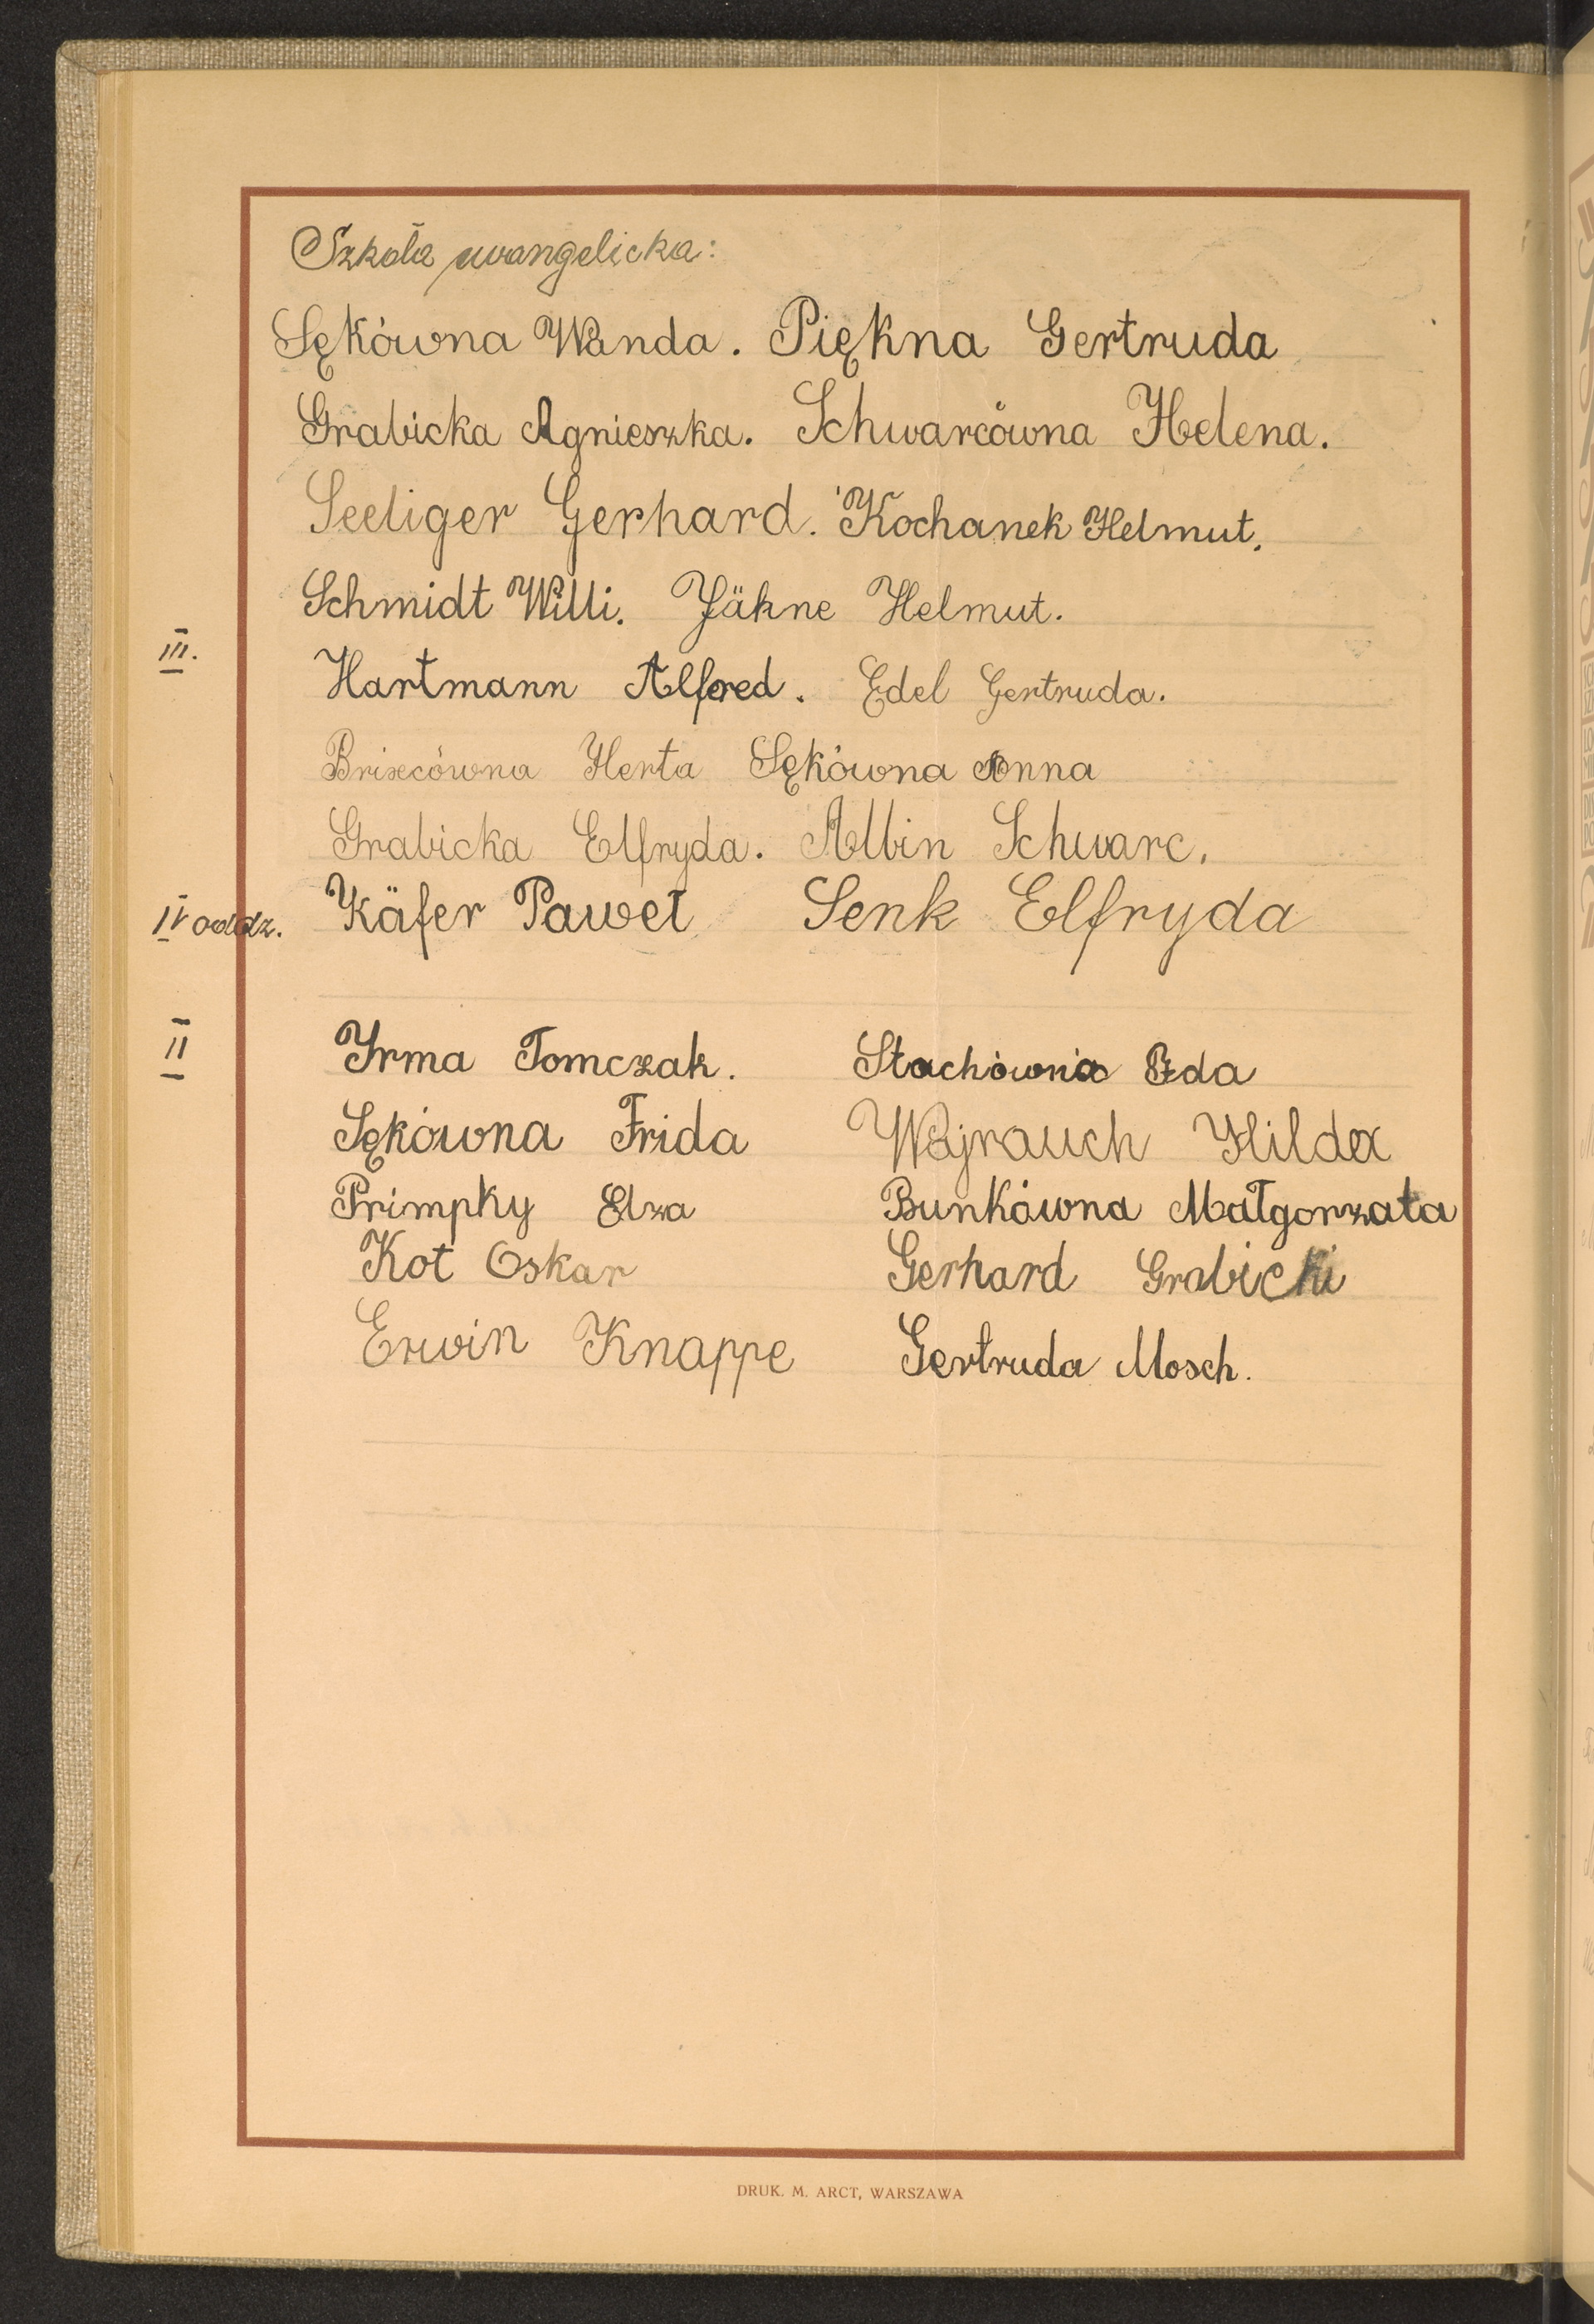 Szkoła ewangelicka:
Sękówna Wanda. Piękna Gertruda
Grabicka Agnieszka. Schwarcówna Helena.
Seeliger Gerhard. Kochanek Helmut.
Schmidt Willi. Jähne Helmut.
III.
Hartmann Alfred. Edel Gertruda.
Herta Sękówna Anna
Grabicka Elfryda. Albin Schwarc.
IV oddz. Käfer Paweł Senk Elfryda
II Yrma Tomczak. Stachówna
Sękówna Frida Wajrauch Hilda
Primpky Elza Bunkówna Małgorzata
Kot Oskar Gerhard Grabicki
Erwin Knappe Gertruda Mosch.
DRUK. M. ARCT, WARSZAWA